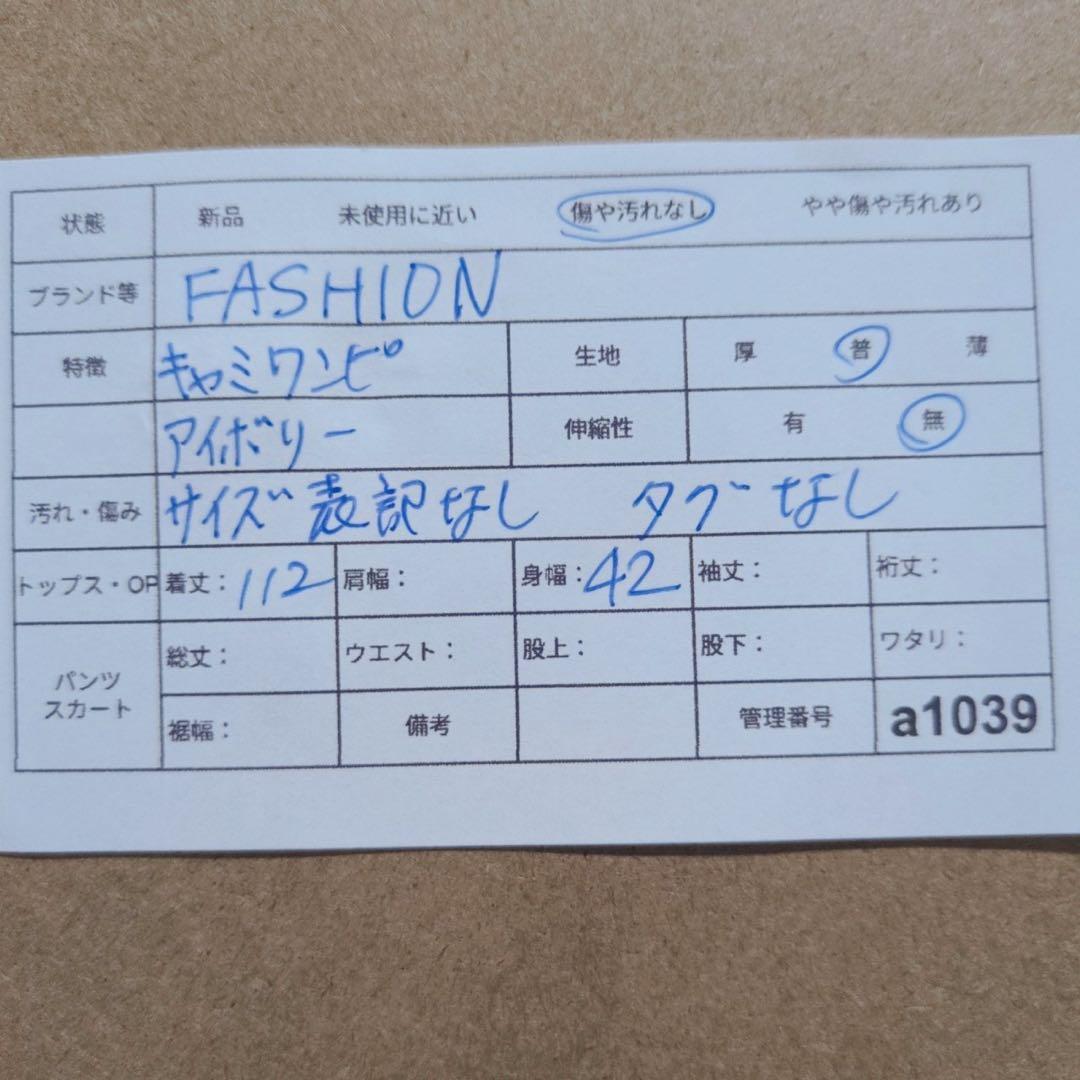 状態 新品 未使用に近い 傷や汚れなし やや傷や汚れあり
ブランド等 FASHION
特徴 キャミワンピ 生地 厚 普 薄
アイボリー 伸縮性 有 無
汚れ・傷み サイズ表記なし タグなし
トップス・OP 着丈：112 肩幅： 身幅：42 袖丈： 裄丈：
パンツ スカート 総丈： ウエスト： 股上： 股下： ワタリ：
裾幅： 備考 管理番号 a1039